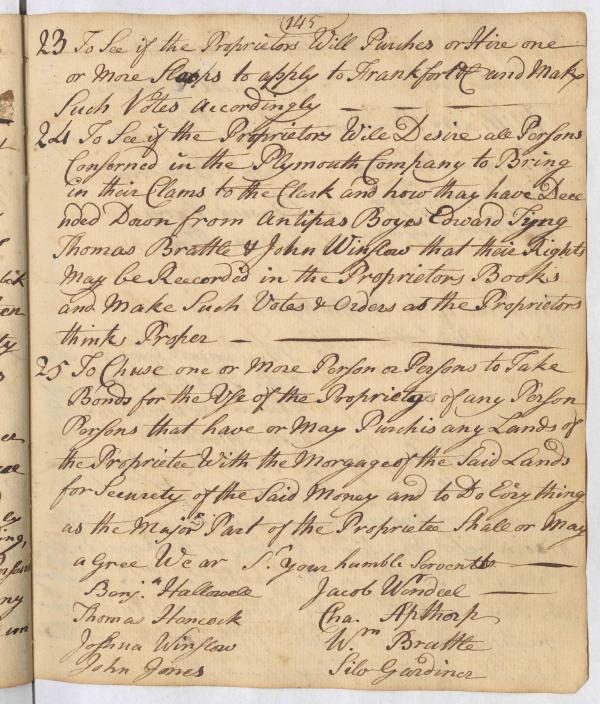 145
23 To See if the Proprietors Will Purches or Hire one
or More Sloops to apply to Frankfort &c and Make
Such Votes accordingly
24 To See if the Proprietors Will Desire all Persons
Conserned in the Plymouth Company to Bring
in their Clams to the Clark and how thay have Dece
nded Down from Antipas Boyes Edward Tyng
Thomas Brattle & John Winslow that their Rights
May be Reecorded in the Proprietors Books
and Make Such Votes & Orders as the Proprietors
thinks Proper
25 To Chuse one or More Person or Persons to Take
Bonds for the Use of the Proprietys of any Person
Porsons that have or May Purchis any Lands of
the Proprietee With the Morgage of the Said Lands
for Security of the Said Money and to Do Eve'ry thing
as the Majo.r Part of the Proprietee Shall or May
a Gree We ar S.r your humble Sorvents
Benj.n Hallowell Jacob Wendell
Thomas Hancock Cha. Apthorp
Joshua Winslow Wm Brattle
John Jones Silv Gardiner